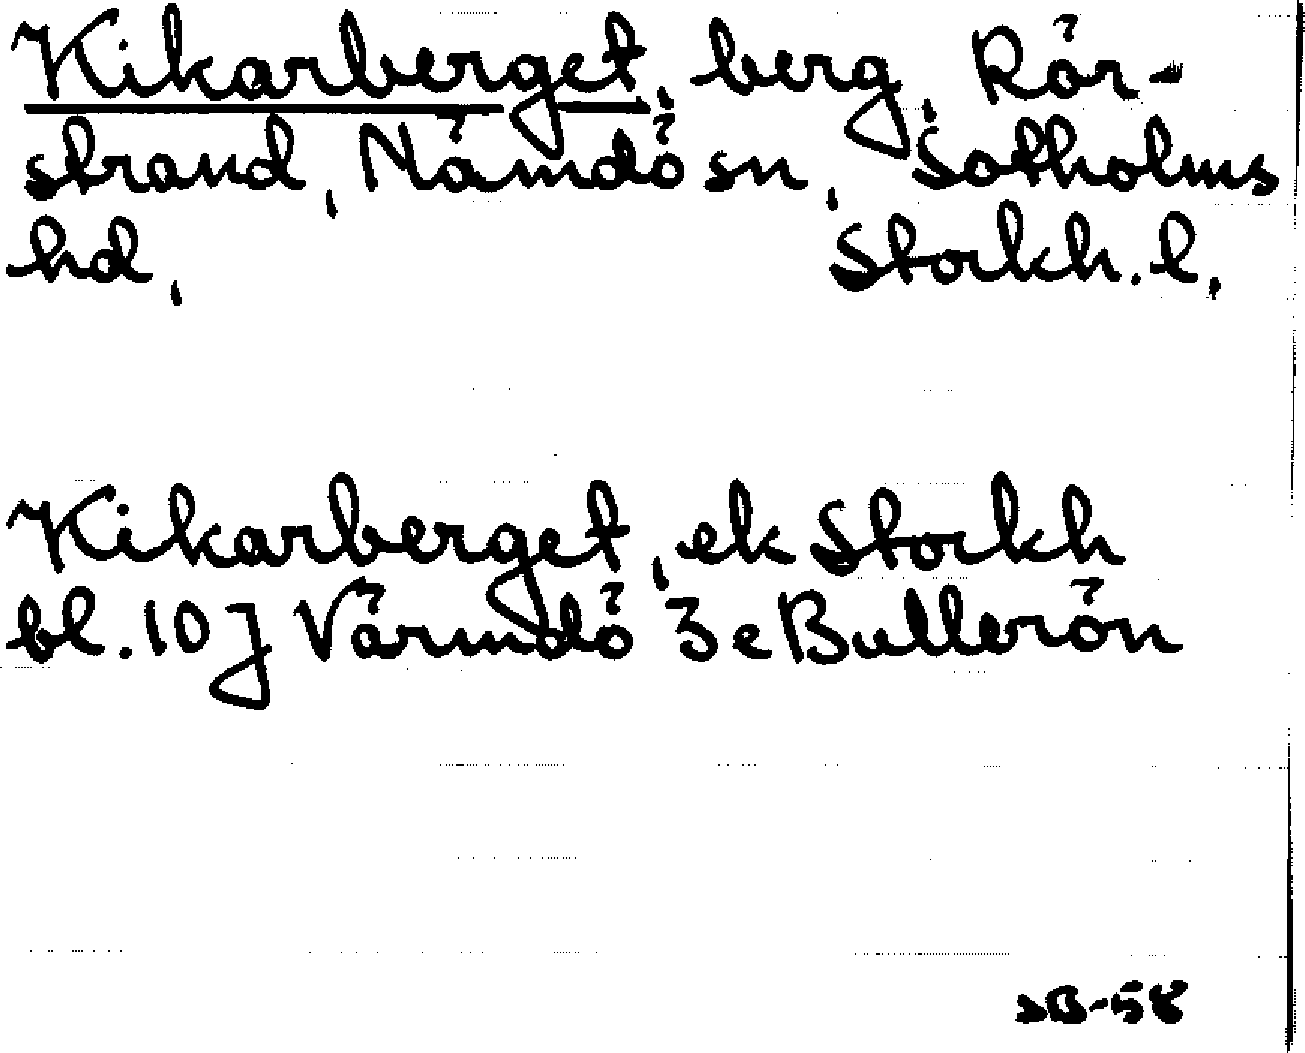 Kikarberget, berg, Rör-
strand, Nämdö sn, Sotholms
hd, Stockh. l.
Kikarberget, ek Stockh
bl. 10 J Värmdö 3 e Bullerön
SB-58